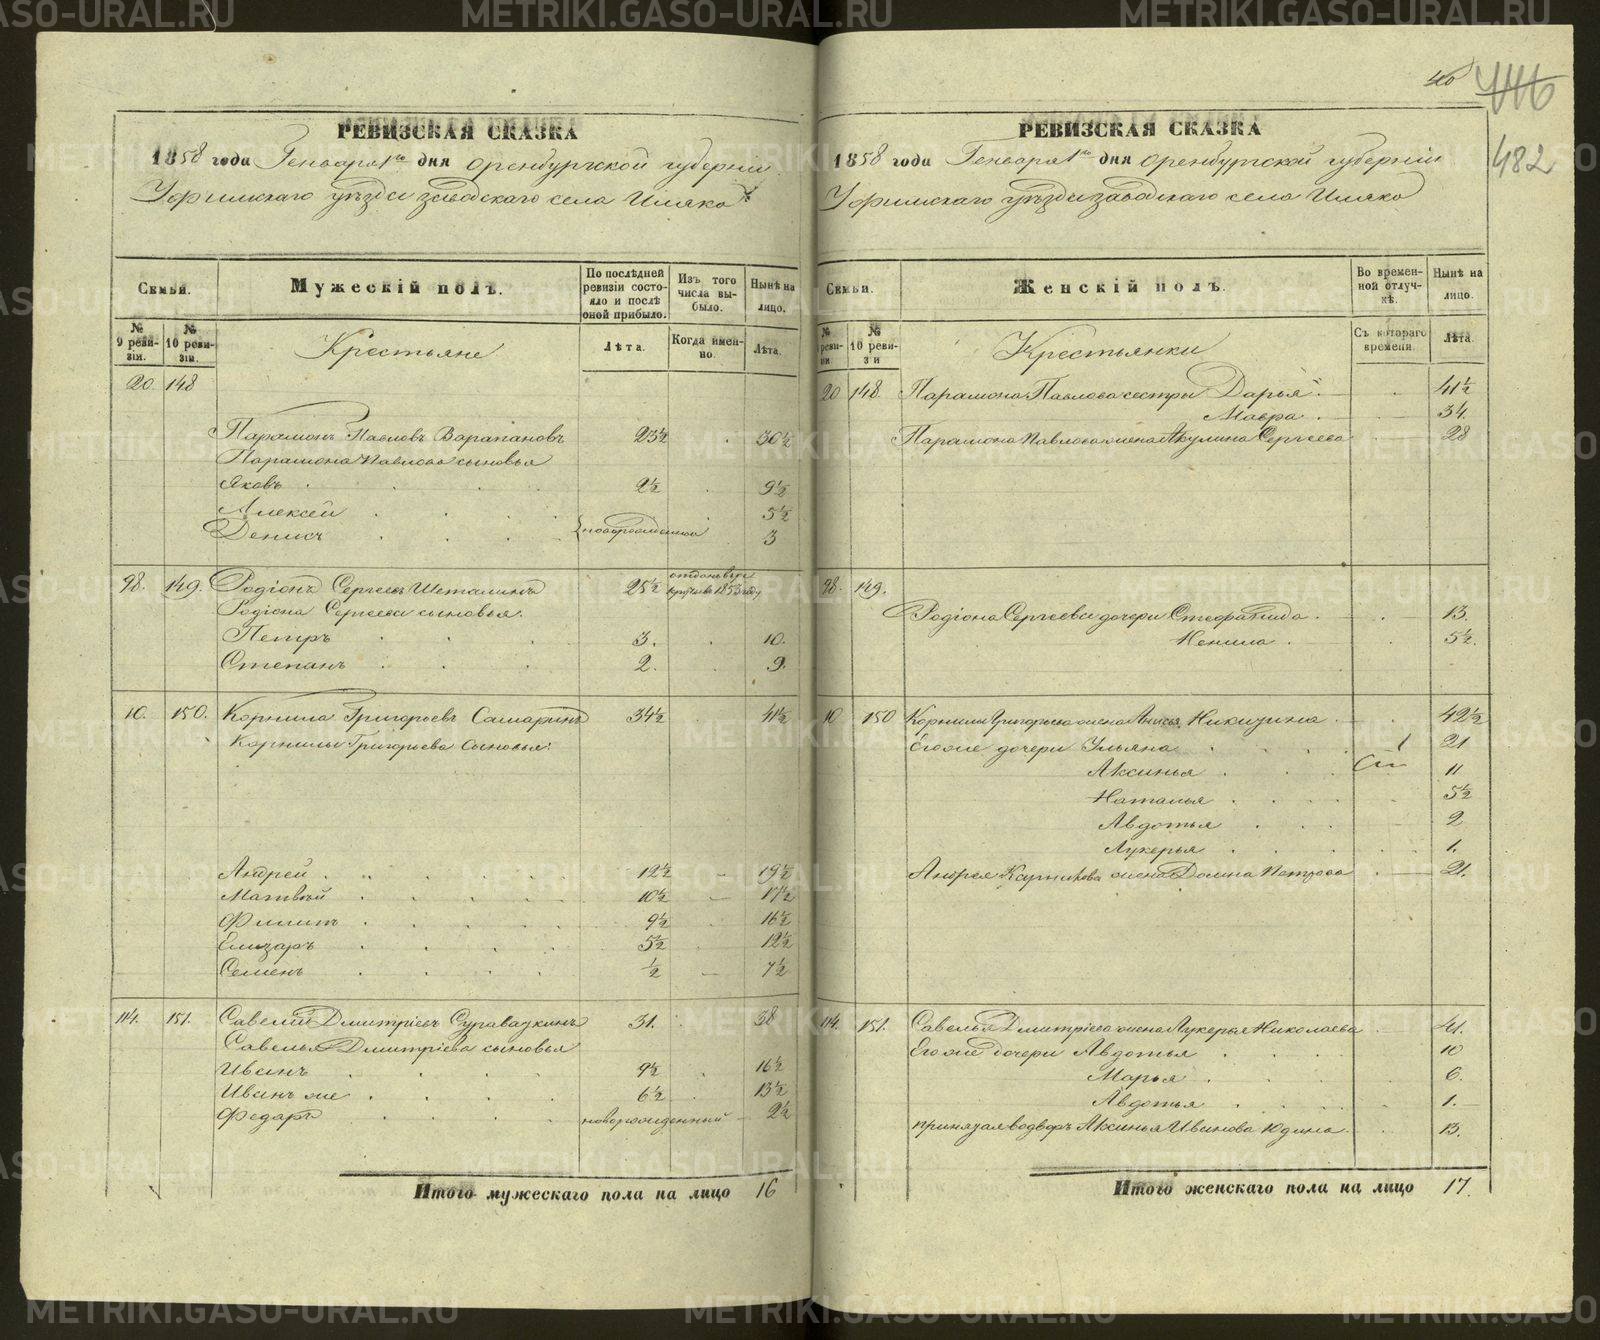 РЕВИЗСКАЯ СКАЗКА
1858 года Генваря 1го дня Оренбургской губерніи
Уфимскаго уѣзда заводскаго села Иляко
Семьи.
Мужескій полъ.
По послѣдней ревизіи состояло и послѣ оной прибыло.
Изъ того числа выбыло.
Нынѣ на лицо.
№ 9 ревизіи.
№ 10 ревизіи.
Крестьяне
Лѣта.
Когда именно.
Лѣта.
20 148
Парамонъ Павловъ 23½ 30½
Парамона Павлова сыновья
Яковъ 2½ 9½
Алексей 5½
Денисъ 3
98. 149. Родіонъ Сергеевъ 25½ 1853 году
Родіона Сергеева сыновья:
Петръ 3. 10.
Степанъ 2. 9.
10. 150. Корнила Григорьевъ Самаринъ 34½ 41½
Корнилы Григорьева сыновья:
Андрей 12½ 19½
Матвей 10½ 17½
Филипъ 9½ 16½
Елизаръ 5½ 12½
Семенъ ½ 7½
114. 151. Савелий Дмитріевъ 31. 38
Савелья Дмитріева сыновья
Иванъ 9½ 16½
Иванъ же 6½ 13½
Федаръ новорожденный 2½
Итого мужескаго пола на лицо 16
40
446
482
РЕВИЗСКАЯ СКАЗКА
1858 года Генваря 1го дня Оренбургской губерніи
Уфимскаго уѣзда заводскаго села Иляко
Семьи.
Женскій полъ.
Во временной отлучкѣ.
Нынѣ на лицо.
№ 10 ревизи
Крестьянки
Съ котораго времени.
Лѣта.
20 148. Парамона Павлова сестры Дарья 41½
Мавра 34.
Парамона Павлова жена Акулина Сергеева 28
98. 149.
Родіона Сергеева дочери Стефанида 13.
Ненила 5½.
10 150 Корнилы Григорьева жена Анисья Никитина 42½
Его же дочери Ульяна 21
Аксинья 11
Наталья 5½
Авдотья 2
Лукерья 1.
Андрея Корнилова жена Домна Петрова 21.
114. 151. Савелья Дмитріева жена Лукерья Николаева 41.
Его же дочери Авдотья 10
Марья 6.
Авдотья 1.
Аксинья Иванова Юдина 13.
Итого женскаго пола на лицо 17.
METRIKI.GASO-URAL.RU